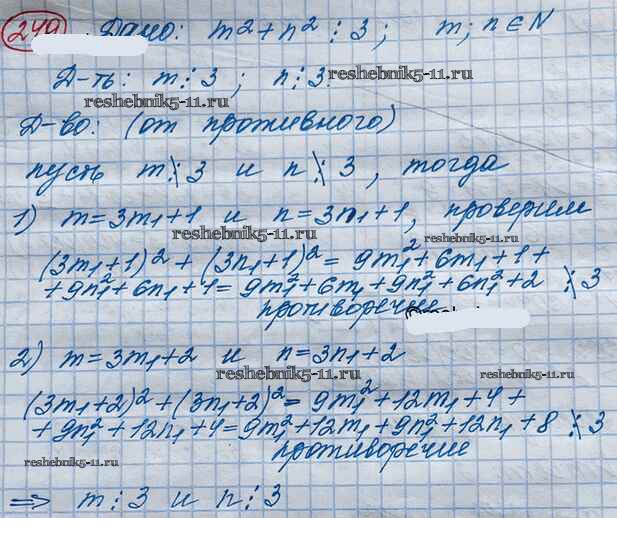 249 Дано: m² + n² ⋮ 3; m; n ∈ N
Д-ть: m ⋮ 3; n ⋮ 3.
reshebnik5-11.ru reshebnik5-11.ru
Д-во: (от противного)
пусть m ⋮̸ 3 и n ⋮̸ 3, тогда
1) m = 3m₁ + 1 и n = 3n₁ + 1, проверим
reshebnik5-11.ru
(3m₁ + 1)² + (3n₁ + 1)² = 9m₁² + 6m₁ + 1 +
+ 9n₁² + 6n₁ + 1 = 9m₁² + 6m₁ + 9n₁² + 6n₁² + 2 ⋮̸ 3
противоречие
2) m = 3m₁ + 2 и n = 3n₁ + 2
reshebnik5-11.ru
(3m₁ + 2)² + (3n₁ + 2)² = 9m₁² + 12m₁ + 4 +
+ 9n₁² + 12n₁ + 4 = 9m₁² + 12m₁ + 9n₁² + 12n₁ + 8 ⋮̸ 3
противоречие
reshebnik5-11.ru
⇒ m ⋮ 3 и n ⋮ 3